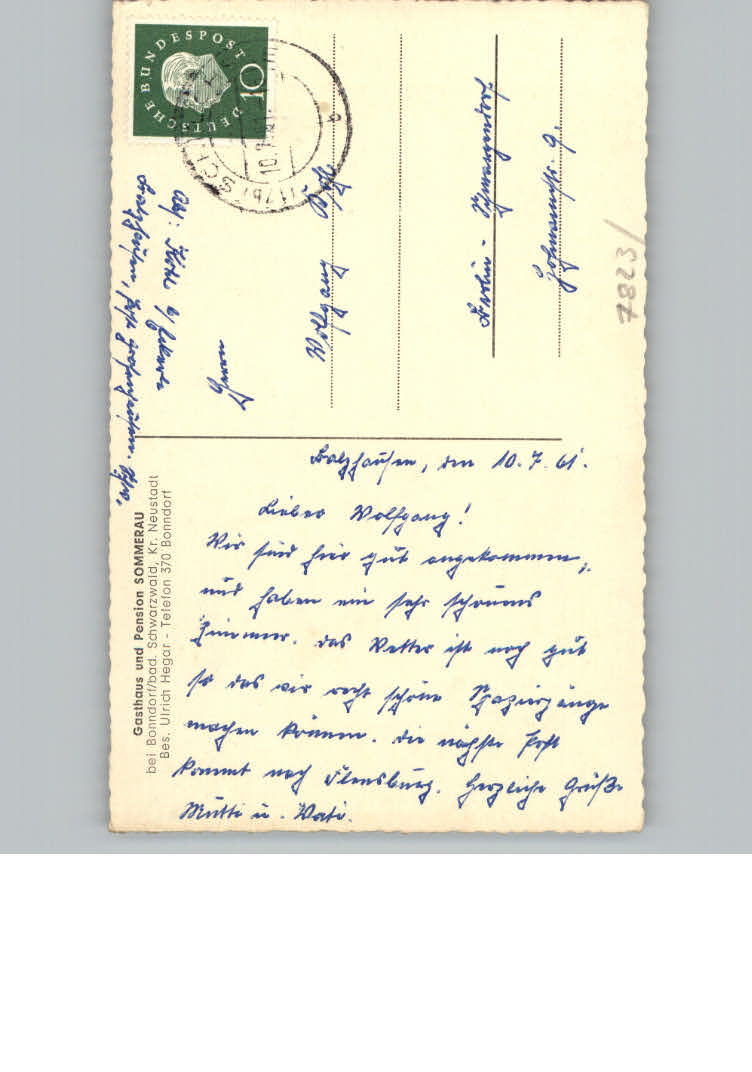 DEUTSCHE BUNDESPOST
10
Abs: Köhl b/
Balzhausen, Post Grafenhausen.
Herrn
Wolfgang
Berlin - Schmargendorf
9.
7823/
Gasthaus und Pension SOMMERAU
bei Bonndorf/bad. Schwarzwald, Kr. Neustadt
Bes. Ulrich Hegar - Telefon 370 Bonndorf
Balzhausen, den 10.7.61.
Lieber Wolfgang!
Wir sind hier gut angekommen,
und haben ein sehr schönes
Zimmer. Das Wetter ist noch gut
so das wir recht schöne Spaziergänge
machen können. Die nächste Post
kommt nach Flensburg. Herzliche Grüße
Mutti u. Vati.